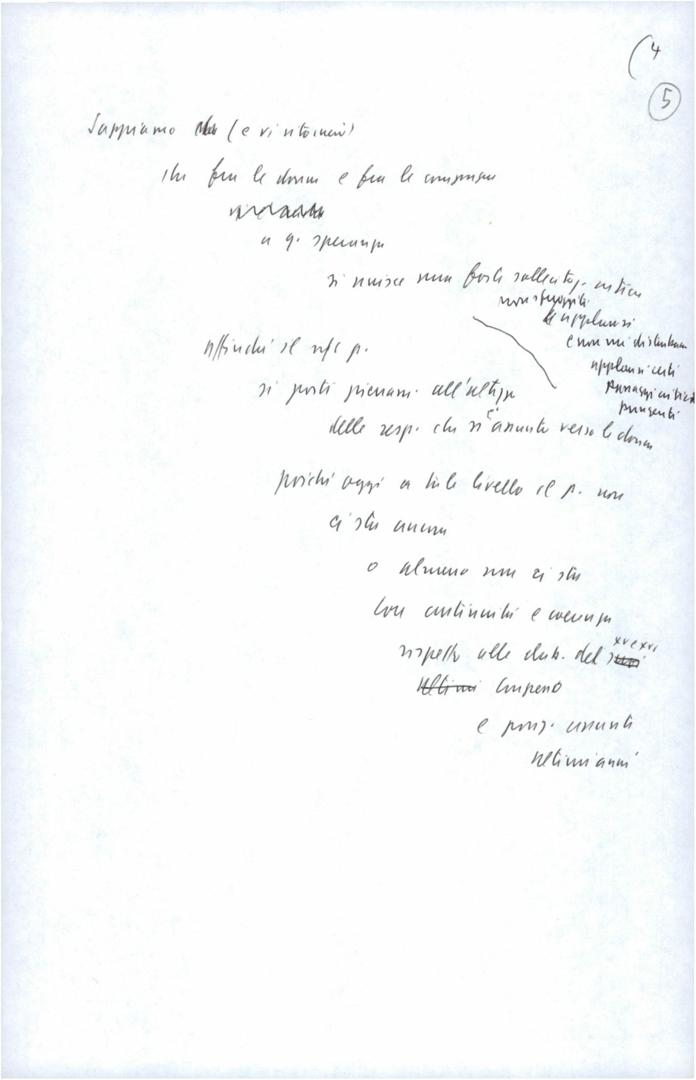 (4
5
Sappiamo (e vi ritornerò)
che fra le donne e fra le compagne
a q. speranza
si unisce una forte sollecitaz. critica
non sfuggiti
applausi
e non mi disturbano
applausi certi
passaggi critici
pungenti
affinché il ns/ p.
si porti pienam. all'altezza
delle resp. che si è assunto verso le donne
poiché oggi a tale livello il p. non
ci sta ancora
o almeno non ci sta
con continuità e coerenza
rispetto alle elab. del XV e XVI
ultimi congresso
e posiz. assunte
ultimi anni